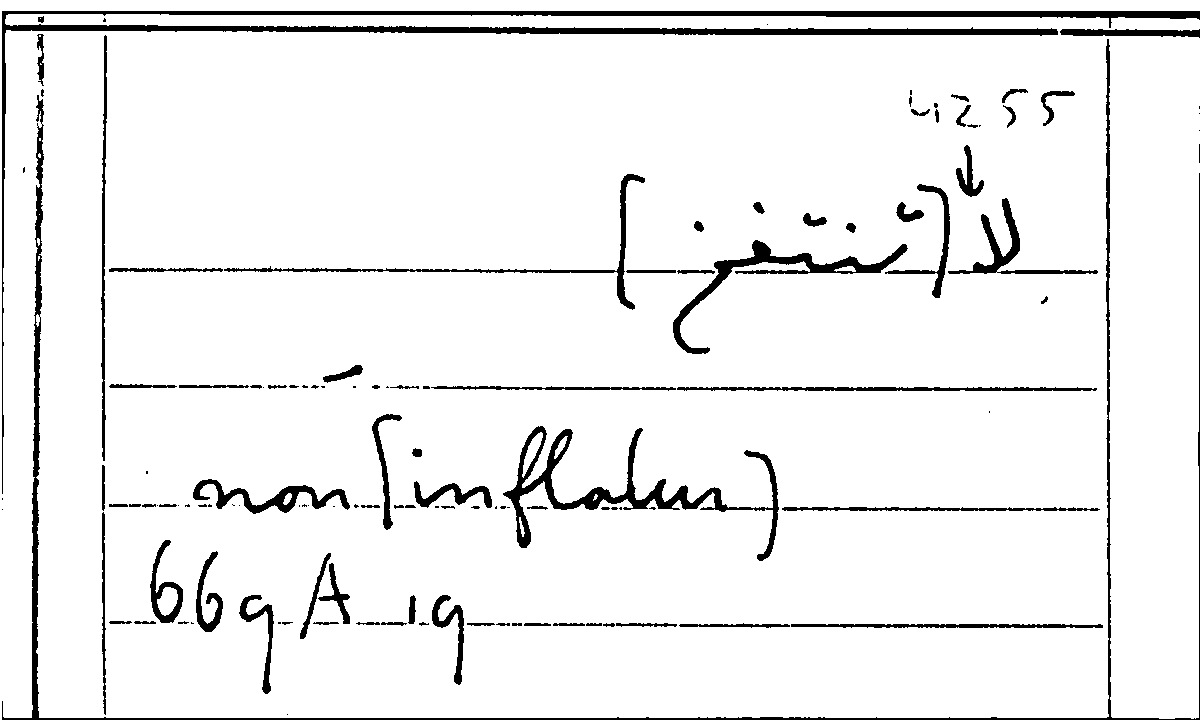 4255
لا [تنتفخ]
non [inflatur]
669 A 19